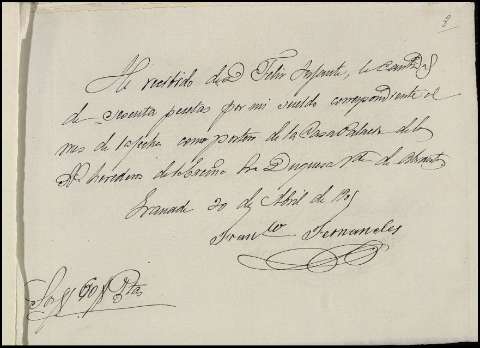 9
He recibido de D Felix Infante, la cantd
de sesenta pesetas por mi sueldo correspondiente al
mes de la fecha como porton de la Casa Palacio de los
Sres herederos de la Excma Sra Duquesa Vda de Abrantes
Granada 30 de Abril de 190
Franco Fernandez
Son 60 Ptas